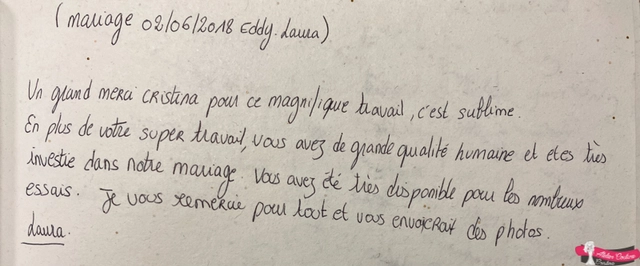 (mariage 02/06/2018 Eddy. Laura)
Un grand merci CRISTINA pour ce magnifique travail, c'est sublime.
En plus de votre super travail, vous avez de grande qualité humaine et etes très
investie dans notre mariage. Vous avez été très disponible pour les nombreux
essais. Je vous remercie pour tout et vous envoierait des photos.
Laura.